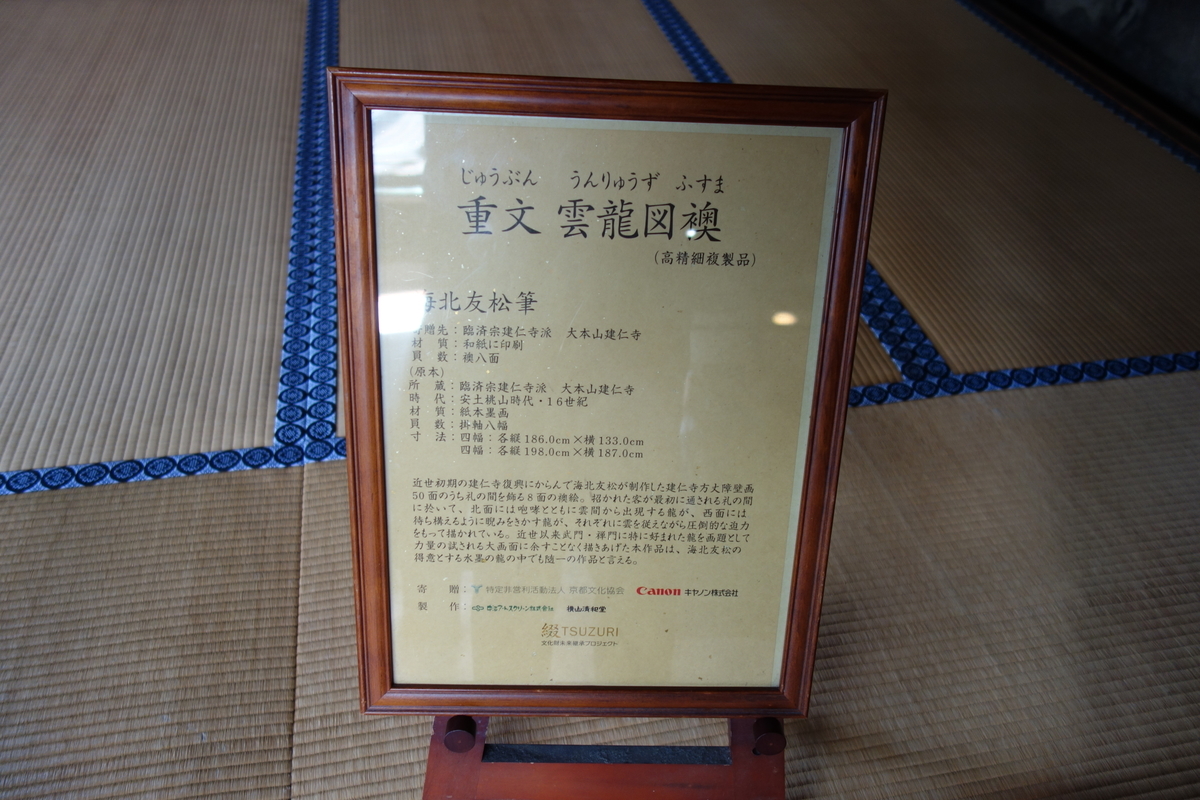 じゅうぶん うんりゅうず ふすま
重文 雲龍図襖
(高精細複製品)
海北友松筆
寄贈先：臨済宗建仁寺派 大本山建仁寺
材 質：和紙に印刷
員 数：襖八面
(原本)
所 蔵：臨済宗建仁寺派 大本山建仁寺
時 代：安土桃山時代・16世紀
材 質：紙本墨画
員 数：掛軸八幅
寸 法：四幅：各縦186.0cm×横133.0cm
四幅：各縦198.0cm×横187.0cm
近世初期の建仁寺復興にからんで海北友松が制作した建仁寺方丈障壁画
50面のうち礼の間を飾る8面の襖絵。招かれた客が最初に通される礼の間
に於いて、北面には咆哮とともに雲間から出現する龍が、西面には
待ち構えるように睨みをきかす龍が、それぞれに雲を従えながら圧倒的な迫力
をもって描かれている。近世以来武門・禅門に特に好まれた龍を画題として
力量の試される大画面に余すことなく描きあげた本作品は、海北友松の
得意とする水墨の龍の中でも随一の作品と言える。
寄 贈：特定非営利活動法人 京都文化協会 Canon キヤノン株式会社
製 作： 横山清和堂
綴TSUZURI
文化財未来継承プロジェクト